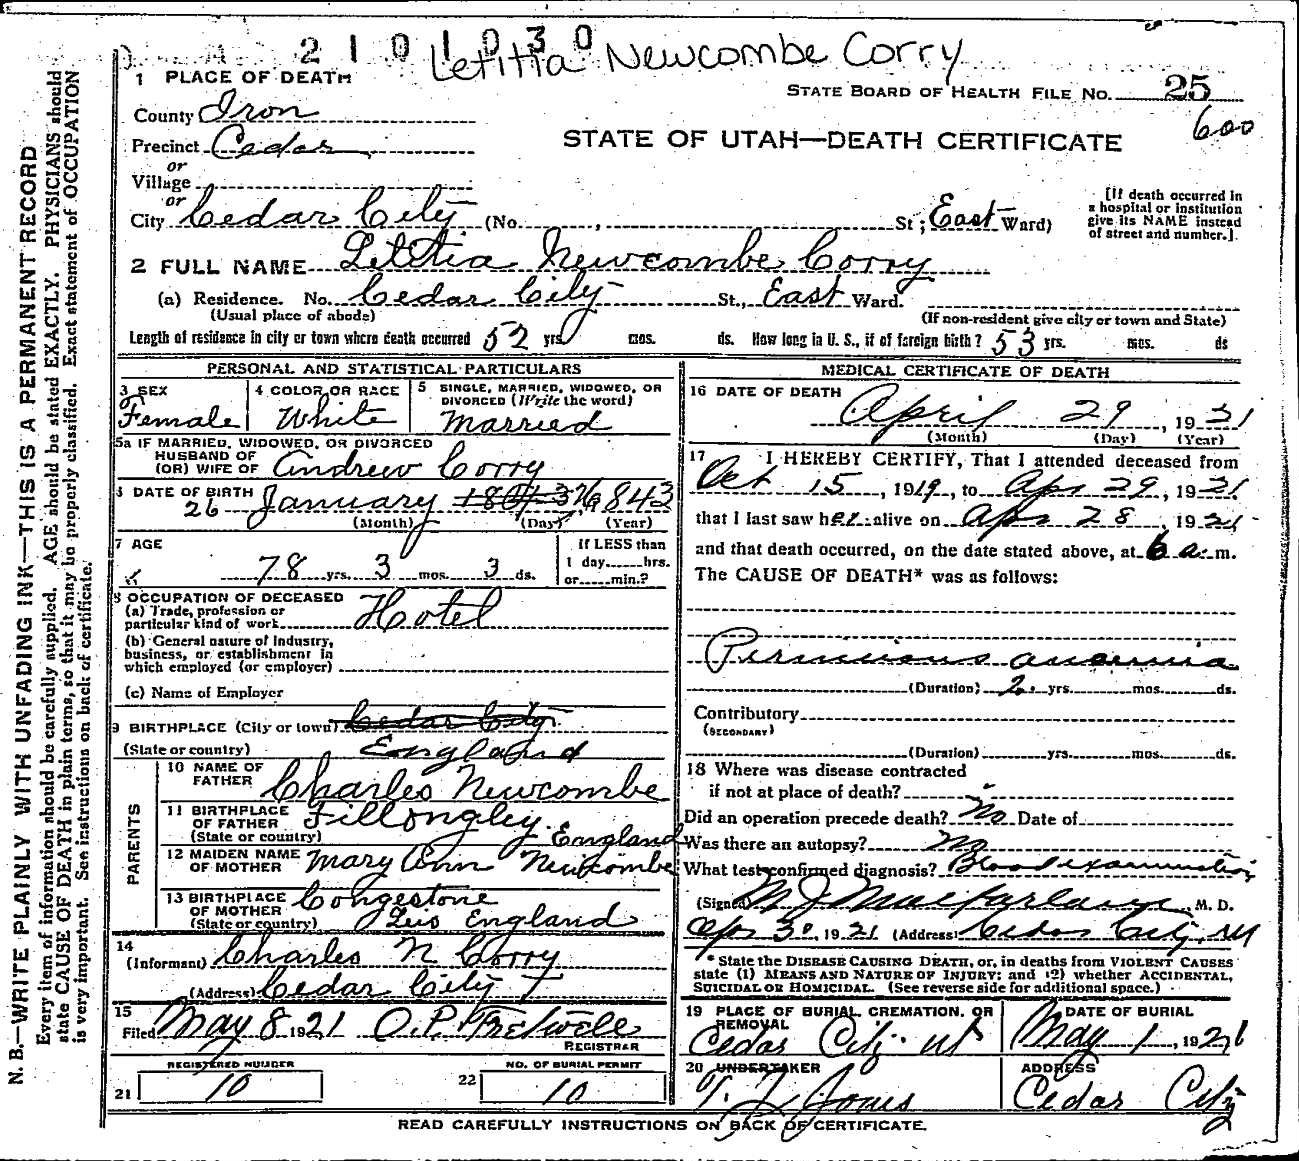 2101030
Letitia Newcombe Corry
1 PLACE OF DEATH
STATE BOARD OF HEALTH FILE NO. 25
600
County Iron
STATE OF UTAH—DEATH CERTIFICATE
Precinct Cedar
or
Village
or
City Cedar City (No. , St; East Ward)
[If death occurred in
a hospital or institution
give its NAME instead
of street and number.]
2 FULL NAME Letitia Newcombe Corry
(a) Residence. No. Cedar City St., East Ward.
(Usual place of abode)
(If non-resident give city or town and State)
Length of residence in city or town where death occurred 52 yrs. mos. ds. How long in U. S., if of foreign birth? 53 yrs. mos. ds
PERSONAL AND STATISTICAL PARTICULARS
3 SEX
Female
4 COLOR OR RACE
White
5 SINGLE, MARRIED, WIDOWED, OR
DIVORCED (Write the word)
Married
5a IF MARRIED, WIDOWED, OR DIVORCED
HUSBAND OF
(OR) WIFE OF Andrew Corry
DATE OF BIRTH
26 January 1843
(Month) (Day) (Year)
7 AGE
78 yrs. 3 mos. 3 ds.
If LESS than
1 day hrs.
or min.?
8 OCCUPATION OF DECEASED
(a) Trade, profession or
particular kind of work Hotel
(b) General nature of Industry,
business, or establishment in
which employed (or employer)
(c) Name of Employer
9 BIRTHPLACE (City or town) Cedar City
(State or country) England
PARENTS
10 NAME OF
FATHER Charles Newcombe
11 BIRTHPLACE
OF FATHER Fillongley
(State or country) England
12 MAIDEN NAME
OF MOTHER Mary Ann Newcombe
13 BIRTHPLACE
OF MOTHER Congestone
(State or country) Leis England
14
(Informant) Charles N Corry
(Address) Cedar City
15
Filed May 8 1921 O.P. Fretwell
REGISTRAR
REGISTERED NUMBER
21 10
NO. OF BURIAL PERMIT
22 10
MEDICAL CERTIFICATE OF DEATH
16 DATE OF DEATH
April 29, 1921
(Month) (Day) (Year)
17 I HEREBY CERTIFY, That I attended deceased from
Oct 15, 1919, to Apr 29, 1921
that I last saw her alive on Apr 28, 1921
and that death occurred, on the date stated above, at 6 a.m.
The CAUSE OF DEATH* was as follows:
Pernicious anaemia
(Duration) 2 yrs. mos. ds.
Contributory
(SECONDARY)
(Duration) yrs. mos. ds.
18 Where was disease contracted
if not at place of death?
Did an operation precede death? No Date of
Was there an autopsy? No
What test confirmed diagnosis? Blood examination
(Signed) M J Macfarlane, M. D.
Apr 30, 1921 (Address) Cedar City, Ut
* State the DISEASE CAUSING DEATH, or, in deaths from VIOLENT CAUSES
state (1) MEANS AND NATURE OF INJURY; and (2) whether ACCIDENTAL,
SUICIDAL OR HOMICIDAL. (See reverse side for additional space.)
19 PLACE OF BURIAL, CREMATION, OR
REMOVAL
Cedar City Ut
DATE OF BURIAL
May 1, 1921
20 UNDERTAKER
T. J. Jones
ADDRESS
Cedar City
READ CAREFULLY INSTRUCTIONS ON BACK OF CERTIFICATE.
N. B.—WRITE PLAINLY WITH UNFADING INK—THIS IS A PERMANENT RECORD
Every item of information should be carefully supplied. AGE should be stated EXACTLY. PHYSICIANS should
state CAUSE OF DEATH in plain terms, so that it may be properly classified. Exact statement of OCCUPATION
is very important. See instructions on back of certificate.